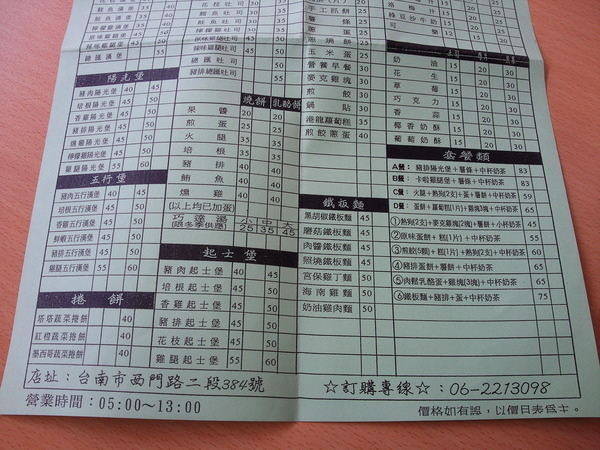 鮪魚漢堡 35 45
檸檬雞漢堡 35 45
原味雞腿堡 45 50
辣味雞腿堡 45 50
總匯漢堡 55
鮪魚吐司
花枝吐司
辣味雞腿吐司 45 50
總匯吐司 50
豬排總匯吐司 55
手工抓餅
薯條
蛋餅
玉米蛋 30
營養早餐 30
麥克雞塊 30
煎餃 30
鍋貼 35
港龍蘿蔔糕 35
煎餃蔥蛋 40
綠豆沙牛奶
奶油 15 20 30
花生 15 20 30
草莓 15 20 30
巧克力 15 20 30
香蒜 15 20 30
椰香奶酥 15 20 30
葡萄奶酥 15 20 30
陽光堡
豬肉陽光堡 40 45
培根陽光堡 45 50
香雞陽光堡 45 50
豬排陽光堡 45 50
燻雞陽光堡 45 50
檸檬雞陽光堡 45 50
雞腿陽光堡 55 60
五行堡
豬肉五行漢堡 40 45
培根五行漢堡 45 50
香雞五行漢堡 45 50
鮮蝦五行漢堡 45 50
豬排五行漢堡 45 50
雞腿五行漢堡 55 60
捲餅
塔塔蔬菜捲餅 40
紅橙蔬菜捲餅 40
墨西哥蔬菜捲餅 40
燒餅 乳酪餅
果醬 20 20
煎蛋 25 25
火腿 35 35
培根 35 35
豬排 40 40
鮪魚 40 40
燻雞 40 40
(以上均已加蛋)
巧達湯 小 中 大
(限冬季供應) 25 35 45
起士堡
豬肉起士堡 40 45
培根起士堡 45 50
香雞起士堡 45 50
豬排起士堡 45 50
花枝起士堡 45 50
雞腿起士堡 55 60
鐵板麵
黑胡椒鐵板麵 45
蘑菇鐵板麵 45
肉醬鐵板麵 45
照燒鐵板麵 45
宮保雞丁麵 50
海南雞麵 50
奶油雞肉麵 50
套餐類
A餐：豬排陽光堡＋薯條＋中杯奶茶 83
B餐：卡啦雞腿堡＋薯條＋中杯奶茶 83
C餐：火腿＋熱狗(2支)＋蛋＋薯餅＋中杯奶茶 59
D餐：蛋餅＋蘿蔔糕(1片)＋雞塊3塊＋中杯奶茶 65
①熱狗(2支)＋麥克雞塊(2塊)＋薯餅＋小杯奶茶 45
②原味蛋餅＋糕(1片)＋中杯奶茶 55
③煎餃(5顆)＋糕(1片)＋熱狗(2支)＋中杯奶茶 60
④豬排蛋餅＋薯餅＋中杯奶茶 65
⑤肉鬆乳酪蛋＋雞塊(3塊)＋中杯奶茶 65
⑥鐵板麵＋豬排＋蛋＋中杯奶茶 75
店址：台南市西門路二段384號
☆訂購專線☆：06-2213098
營業時間：05:00～13:00
價格如有誤，以價目表為主。